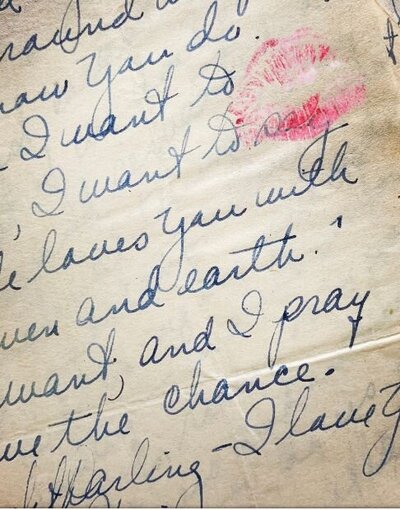 around
now you do.
I want to
, I want to say
loves you with
ven and earth."
want, and I pray
ve the chance.
Darling - I love Y